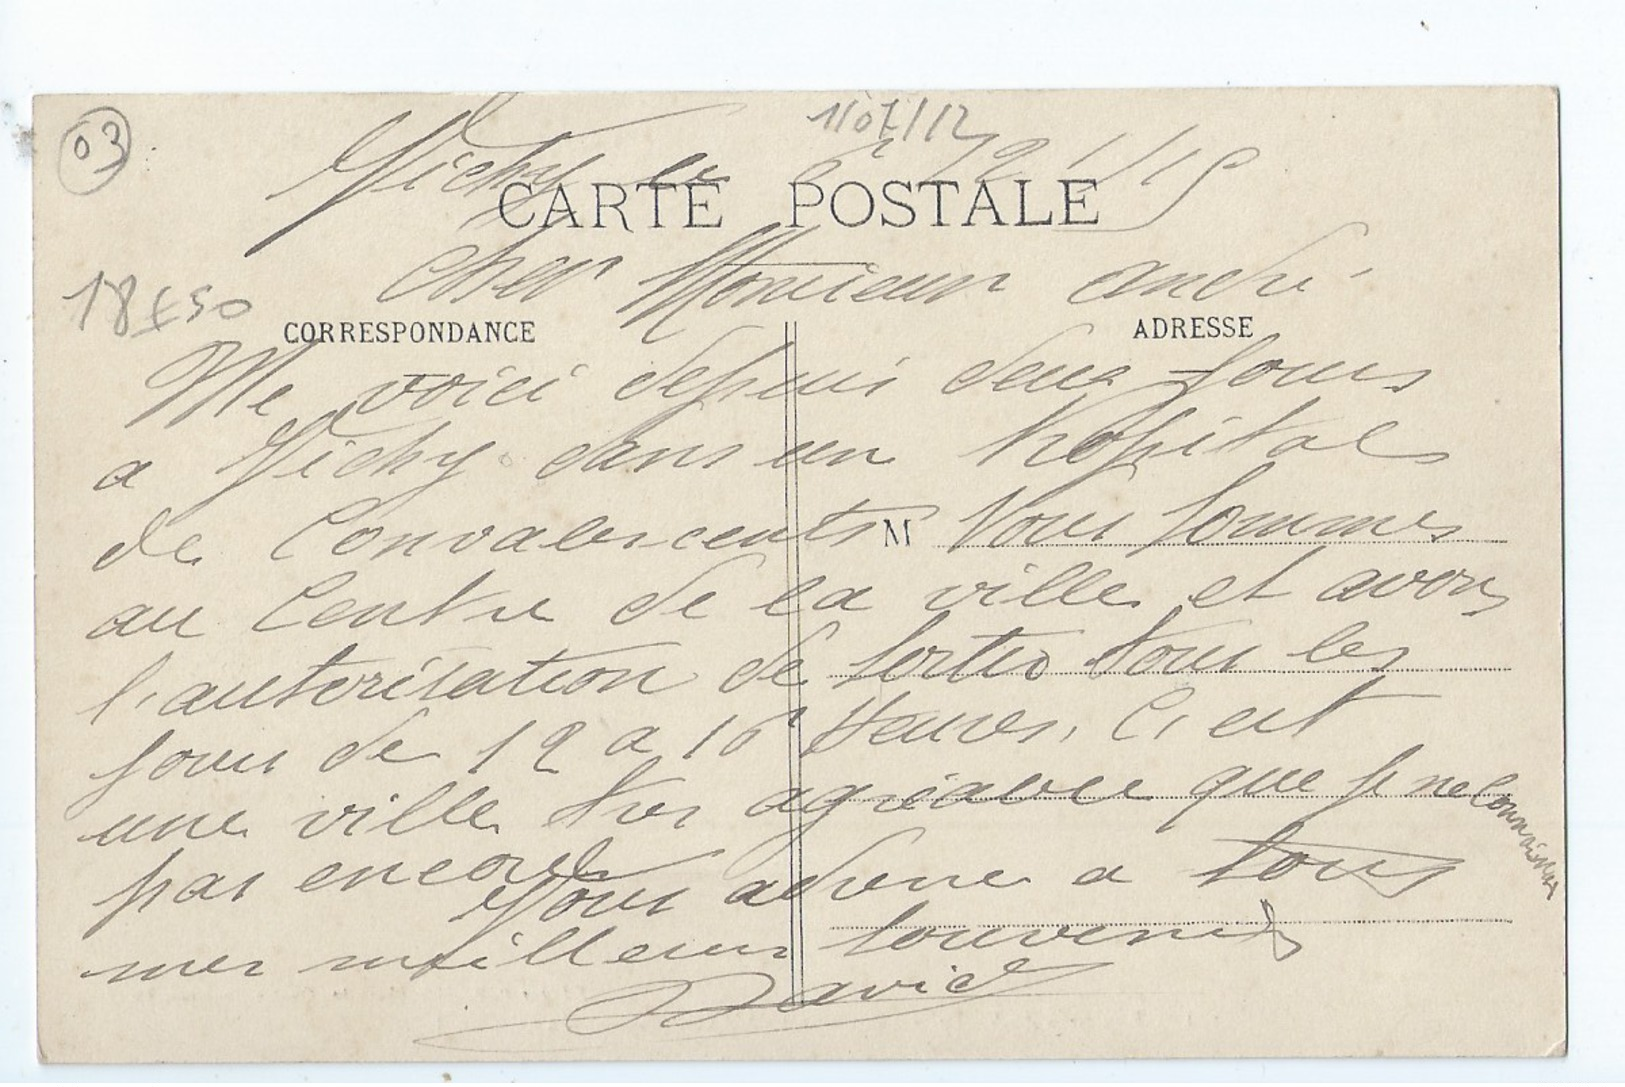 03
1/07/12
Vichy le
CARTE POSTALE
Cher Monsieur André
18f50
CORRESPONDANCE
ADRESSE
Me voici depuis deux Jours
a Vichy dans un hopital
de Convalescents
M
Nous sommes
au Centre de la ville et avons
l'autorisation de sortir tous les
jours de 12 a 16 Heures. C'est
une ville tres agréable que je ne connaissais
pas encore
Vous adresse a tous
mes meilleurs souvenirs
David